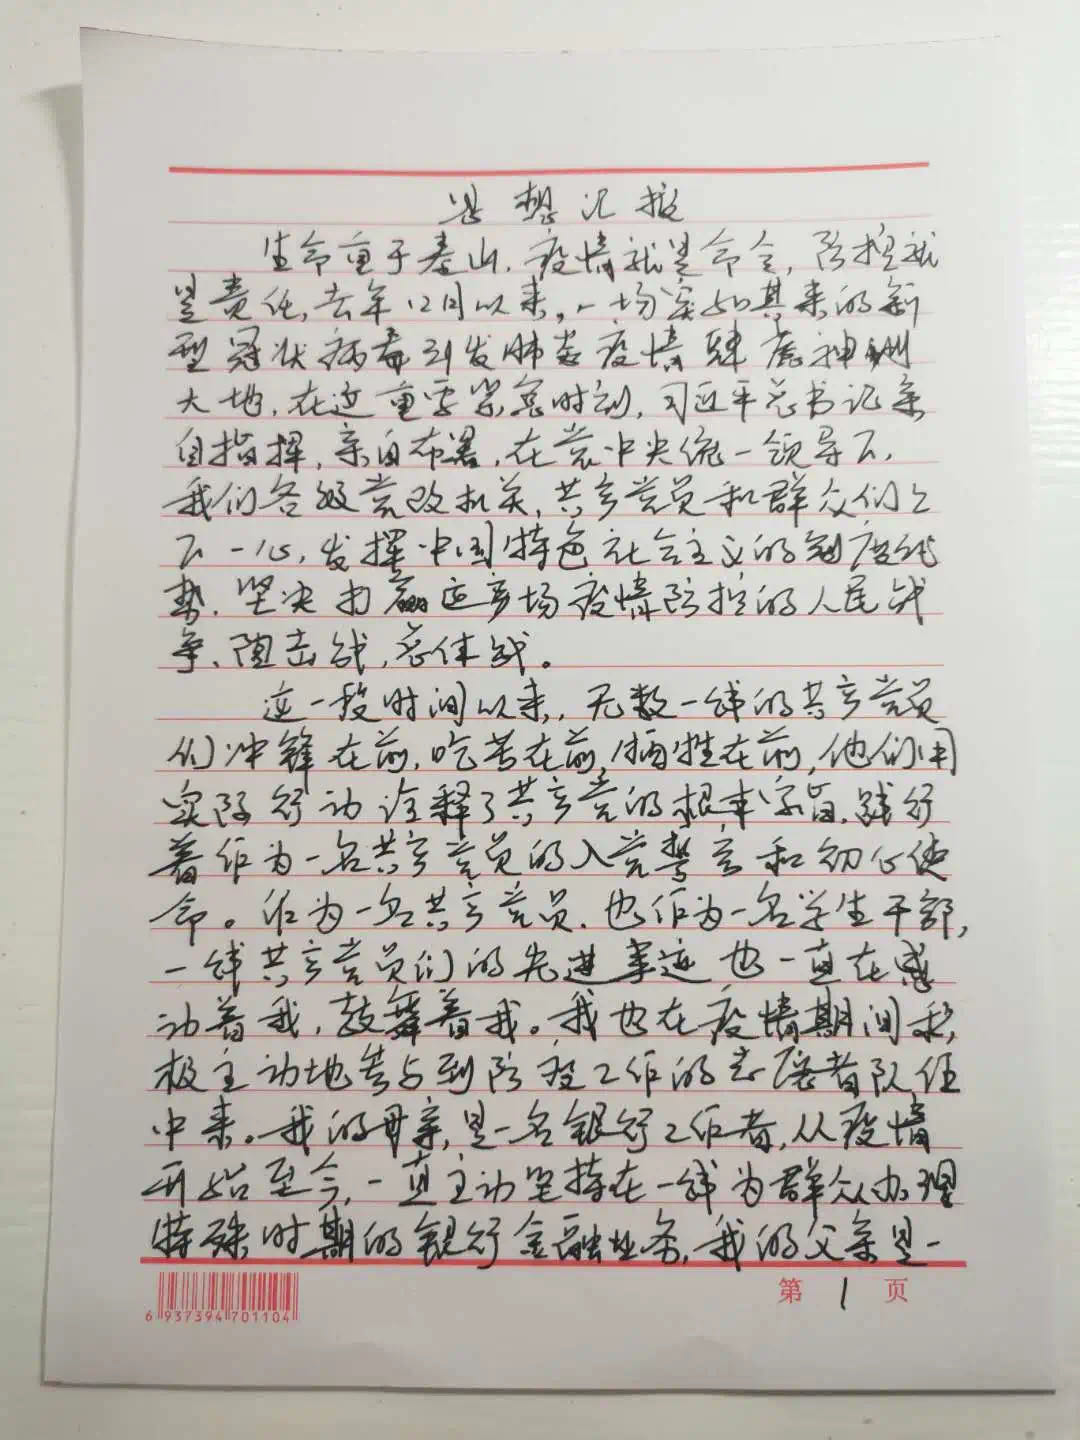 思想汇报
生命重于泰山,疫情就是命令,防控就
是责任,去年12月以来,一场突如其来的新
型冠状病毒引发肺炎疫情肆虐神州
大地,在这重要紧急时刻,习近平总书记亲
自指挥,亲自布署,在党中央统一领导下,
我们各级党政机关,共产党员和群众们上
下一心,发挥中国特色社会主义的制度优
势,坚决打赢这场疫情防控的人民战
争、阻击战,总体战。
这一段时间以来,无数一线的共产党员
们冲锋在前,吃苦在前,牺牲在前,他们用
实际行动诠释了共产党的根本宗旨,践行
着作为一名共产党员的入党誓言和初心使
命。作为一名共产党员,也作为一名学生干部,
一线共产党员们的先进事迹也一直在感
动着我,鼓舞着我。我也在疫情期间积
极主动地参与到防疫工作的志愿者队伍
中来。我的母亲,是一名银行工作者,从疫情
开始至今,一直主动坚持在一线为群众办理
特殊时期的银行金融业务,我的父亲是一
6 937394 701104
第 1 页